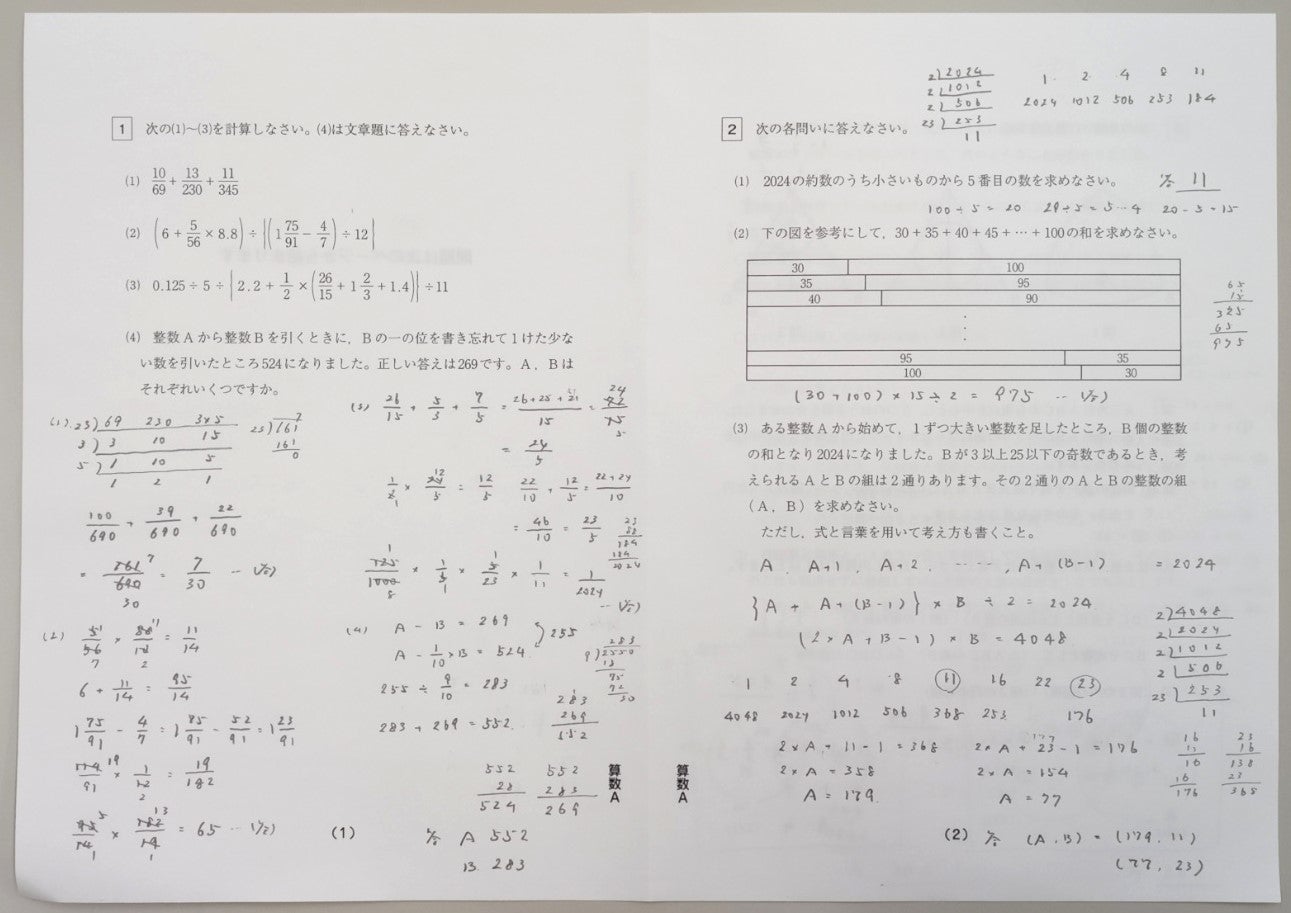 1 次の(1)~(3)を計算しなさい。(4)は文章題に答えなさい。
(1) 10/69 + 13/230 + 11/345
(2) (6 + 5/56 × 8.8) ÷ {(1 75/91 − 4/7) ÷ 12}
(3) 0.125 ÷ 5 ÷ {2.2 + 1/2 × (26/15 + 1 2/3 + 1.4)} ÷ 11
(4) 整数Aから整数Bを引くときに，Bの一の位を書き忘れて1けた少な
い数を引いたところ524になりました。正しい答えは269です。A，Bは
それぞれいくつですか。
(1) 23)69 230 345
3)3 10 15
5)1 10 5
1 2 1
23)161 7
161
0
100/690 + 39/690 + 22/690
= 161/690 = 7/30
(2) 5/56 × 88/10 = 11/14
6 + 11/14 = 95/14
1 75/91 − 4/7 = 1 75/91 − 52/91 = 1 23/91
114/91 × 1/12 = 19/182
95/14 × 182/19 = 65
(3) 26/15 + 5/3 + 7/5 = 26+25+21/15 = 72/15
= 24/5
1/2 × 24/5 = 12/5 22/10 + 12/5 = 22+24/10
= 46/10 = 23/5
125/1000 × 1/5 × 5/23 × 1/11 = 1/2024
(4) A − B = 269
255
A − 1/10 × B = 524
255 ÷ 9/10 = 283
283 + 269 = 552
283
9)2550
18
75
72
30
283
269
552
552 552
28 283
524 269
答 A 552
B 283
算数A
(1)
2)2024 1 2 4 8 11
2)1012 2024 1012 506 253 184
2)506
23)253
11
2 次の各問いに答えなさい。
(1) 2024の約数のうち小さいものから5番目の数を求めなさい。 答 11
100÷5=20 29÷5=5…4 20−5=15
(2) 下の図を参考にして，30＋35＋40＋45＋…＋100の和を求めなさい。
30 100
35 95
40 90
95 35
100 30
65
15
325
65
975
(30+100)×15÷2 = 975
(3) ある整数Aから始めて，1ずつ大きい整数を足したところ，B個の整数
の和となり2024になりました。Bが3以上25以下の奇数であるとき，考
えられるAとBの組は2通りあります。その2通りのAとBの整数の組
(A，B)を求めなさい。
ただし，式と言葉を用いて考え方も書くこと。
A A+1, A+2, ……, A+(B−1) = 2024
{A + A+(B−1)} × B ÷ 2 = 2024
(2×A+B−1)×B = 4048
2)4048
2)2024
2)1012
2)506
23)253
11
1 2 4 8 11 16 22 23
4048 2024 1012 506 368 253 176
2×A+11−1=368 2×A+23−1=176
2×A=358 2×A=154
A=179 A=77
16
11
16
16
176
23
16
138
23
368
算数A
(2) 答 (A,B) = (179, 11)
(77, 23)